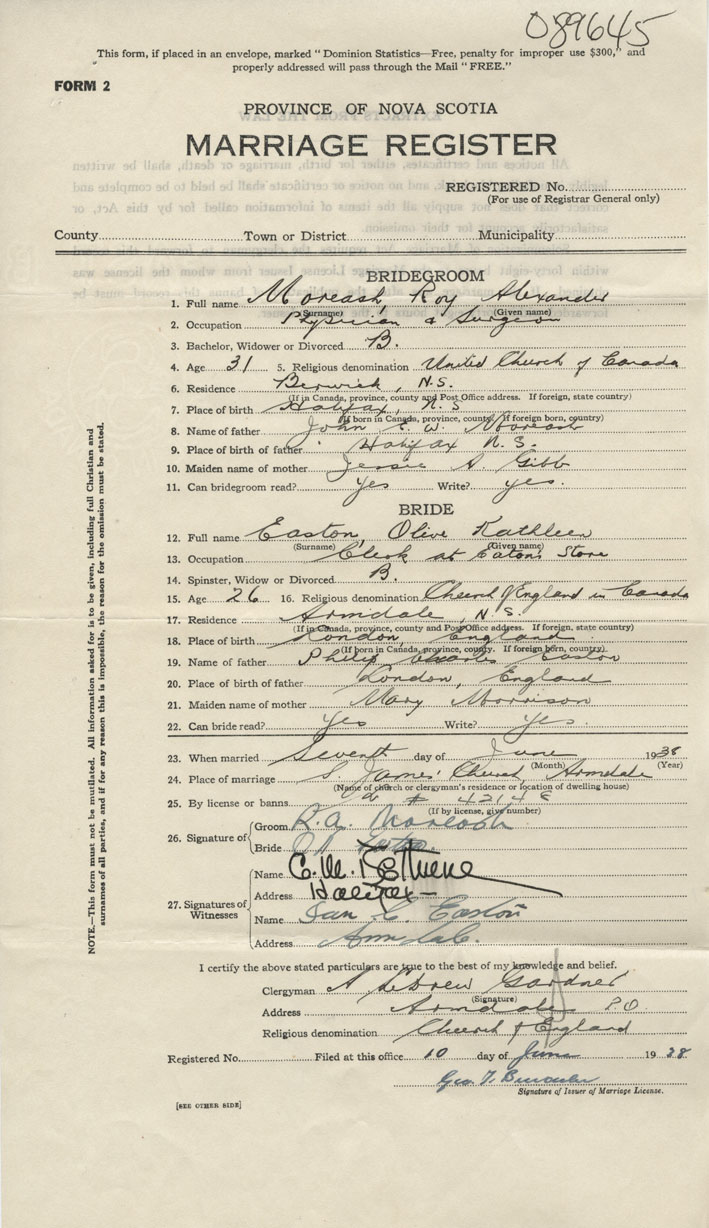 089645
This form, if placed in an envelope, marked "Dominion Statistics—Free, penalty for improper use $300," and
properly addressed will pass through the Mail "FREE."
FORM 2
PROVINCE OF NOVA SCOTIA
MARRIAGE REGISTER
REGISTERED No.
(For use of Registrar General only)
County Town or District Municipality
BRIDEGROOM
1. Full name Moreash, Roy Alexander
(Surname) (Given name)
2. Occupation Physician & Surgeon
3. Bachelor, Widower or Divorced B.
4. Age 31 5. Religious denomination United Church of Canada
6. Residence Berwick, N.S.
(If in Canada, province, county and Post Office address. If foreign, state country)
7. Place of birth Halifax, N.S
(If born in Canada, province, county. If foreign born, country)
8. Name of father John E. W. Moreash
9. Place of birth of father Halifax N.S.
10. Maiden name of mother Jessie A. Gibb
11. Can bridegroom read? yes Write? yes.
BRIDE
12. Full name Easton, Olive Kathleen
(Surname) (Given name)
13. Occupation Clerk at Eatons Store
14. Spinster, Widow or Divorced B.
15. Age 26 16. Religious denomination Church of England in Canada
17. Residence Armdale, N.S.
(If in Canada, province, county and Post Office address. If foreign, state country)
18. Place of birth London, England
(If born in Canada, province, county. If foreign born, country)
19. Name of father Philip Charles Easton
20. Place of birth of father London, England
21. Maiden name of mother Mary Morrison
22. Can bride read? Yes Write? Yes.
23. When married Seventh day of June 1938
(Month) (Year)
24. Place of marriage S. James' Church, Armdale
(Name of church or clergyman's residence or location of dwelling house)
25. By license or banns # 42148
(If by license, give number)
26. Signature of
Groom R.A. Moreash
Bride
27. Signatures of Witnesses
Name C. M. Bethune
Address Halifax
Name Ian C. Easton
Address Armdale.
I certify the above stated particulars are true to the best of my knowledge and belief.
Clergyman Gardner
(Signature)
Address Armdale P.O.
Religious denomination Church of England
Registered No. Filed at this office 10 day of June 1938
Geo. T.
Signature of Issuer of Marriage License.
[SEE OTHER SIDE]
NOTE.—This form must not be mutilated. All information asked for is to be given, including full Christian and
surnames of all parties, and if for any reason this is impossible, the reason for the omission must be stated.